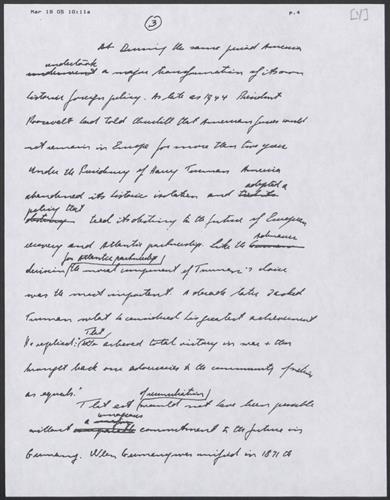 Mar 18 05 10:11a p.4
3
[V]
At During the same period America
undertook
underwent a major transformation of its own
historic foreign policy. As late as 1944 President
Roosevelt had told Churchill that American forces would
not remain in Europe for more than two years
Under the Presidency of Harry Truman America
abandoned its historic isolation and
adopted a
policy that
tied its destiny to the future of European
recovery and Atlantic partnership. Like the
Adenauer
for Atlantic partnership
decision the moral component of Truman's choice
was the most important. A decade later I asked
Truman what he considered his greatest achievement
He replied: That
we achieved total victory in war & then
brought back our adversaries to the community of nations
as equals."
of reconciliation
That act would not have been possible
without a courageous commitment to the future in
Germany. When Germany was unified in 1871 the